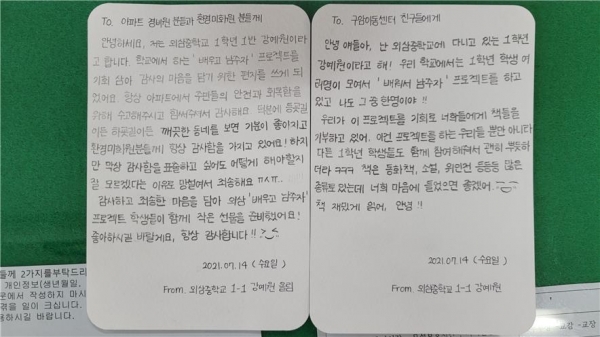 To. 아파트 경비원 분들과 환경미화원 분들께
안녕하세요, 저는 외삼중학교 1학년 1반 강예원이라
고 합니다. 학교에서 하는 '배우고 남주자' 프로젝트를
기회 삼아 감사의 마음을 담기 위한 편지를 쓰게 되
었어요. 항상 아파트에서 주민들의 안전과 회복함을
위해 수고해주시고 힘써주셔서 감사해요. 덕분에 등굣길
이든 하굣길이든 깨끗한 동네를 보면 기분이 좋아지고
환경미화원분들께 항상 감사함을 가지고 있어요! 하지
만 막상 감사함을 표출하고 싶어도 어떻게 해야할지
잘 모르겠다는 이유로 망설여서 죄송해요 ㅠㅅㅠ..
감사하고 죄송한 마음을 담아 외삼 '배우고 남주자'
프로젝트 학생들이 함께 작은 선물을 준비했어요!
좋아하시길 바랄게요, 항상 감사합니다!!
2021.07.14 (수요일)
From. 외삼중학교 1-1 강예원 올림
To. 구암이동센터 친구들에게
안녕 얘들아, 난 외삼중학교에 다니고 있는 1학년
강예원이라고 해! 우리 학교에서는 1학년 학생 여
러명이 모여서 '배워서 남주자' 프로젝트를 하고
있고 나도 그 중 한명이야!!
우리가 이 프로젝트를 기회로 너희들에게 책들을
기부하고 있어. 이건 프로젝트를 하는 우리들 뿐만 아니라
다른 1학년 학생들도 함께 참여해줘서 괜히 뿌듯하
더라 ㅋㅋㅋ 책은 동화책, 소설, 위인전 등등등 많은
종류로 있는데 너희 마음에 들었으면 좋겠어.
책 재밌게 읽어, 안녕!!
2021.07.14 (수요일)
From. 외삼중학교 1-1 강예원
들께 2가지를부탁드리
개인정보(생년월일,
로에서 작성하지 마시
겪을 일이 크십니다.
해하시길 바랍니다.
교감 - 교장